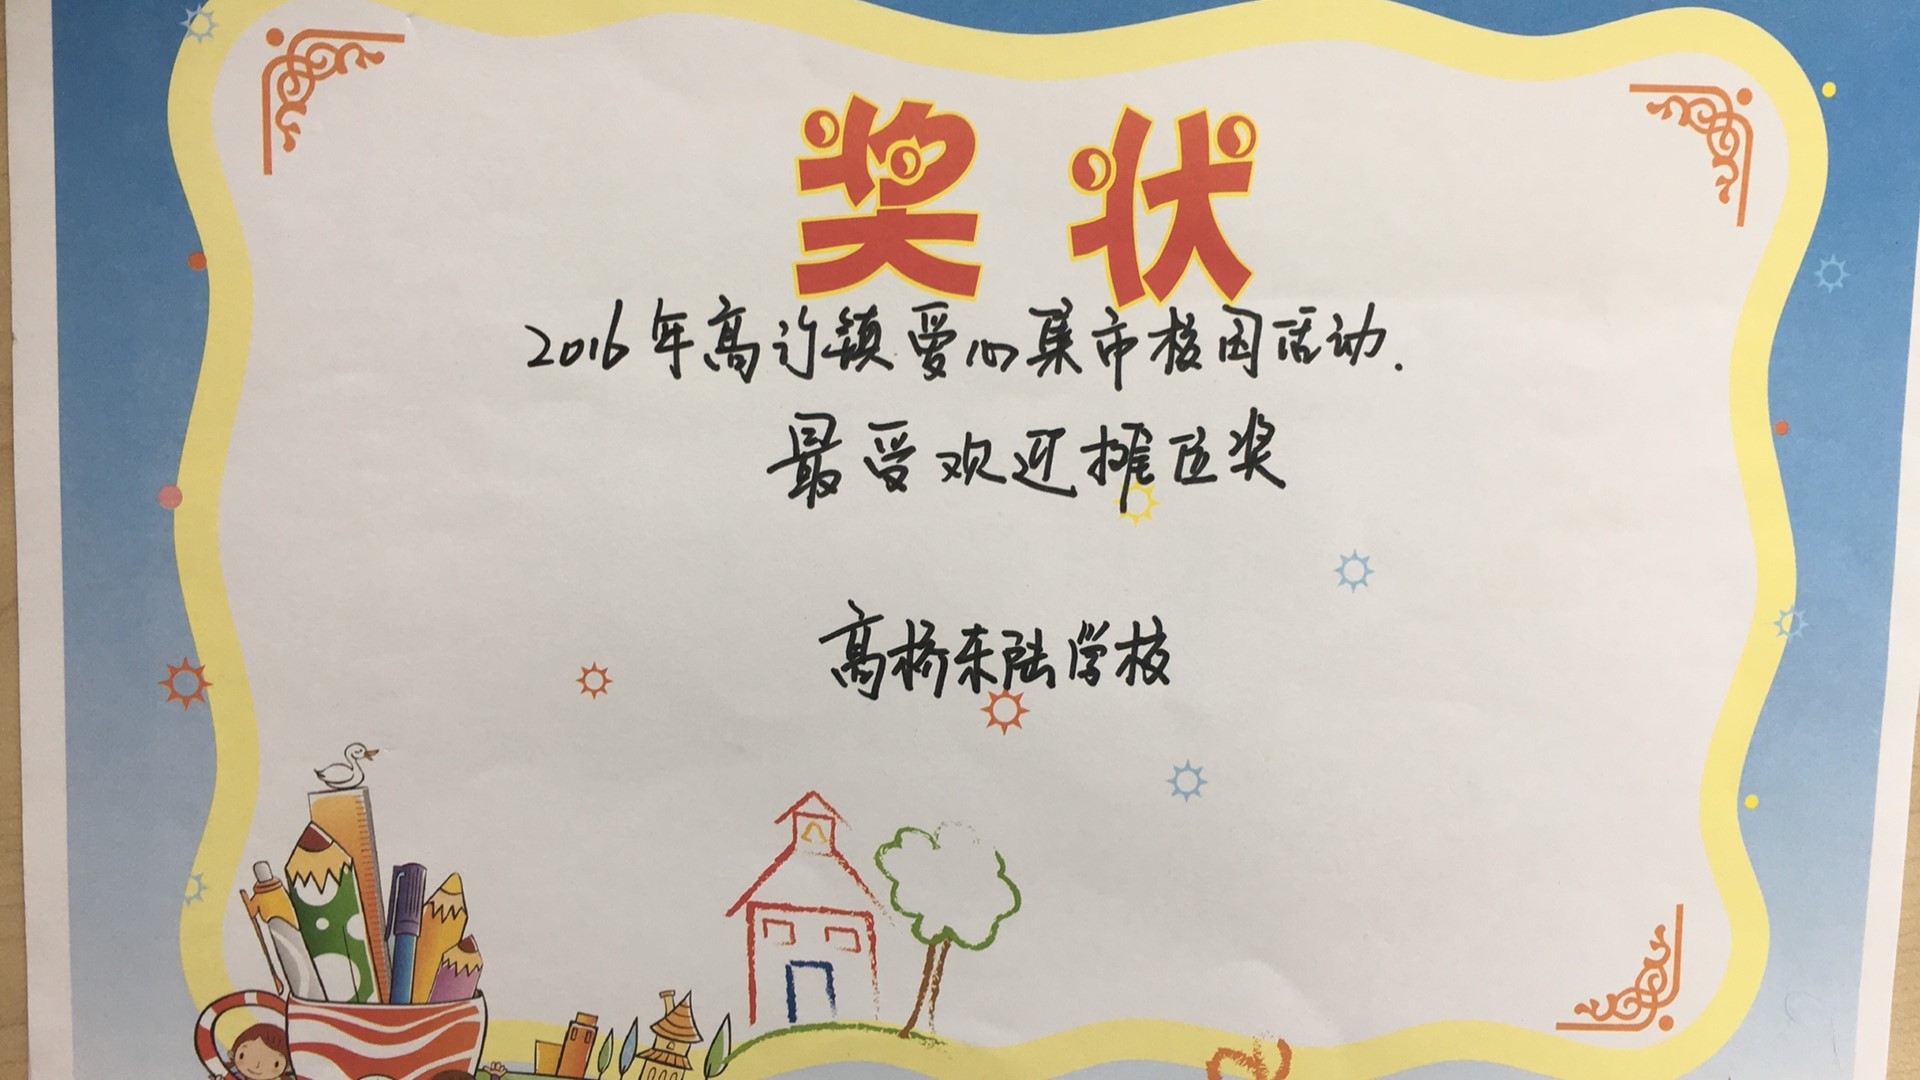 奖状
2016年高行镇爱心集市校园活动.
最受欢迎摊位奖
高桥东陆学校